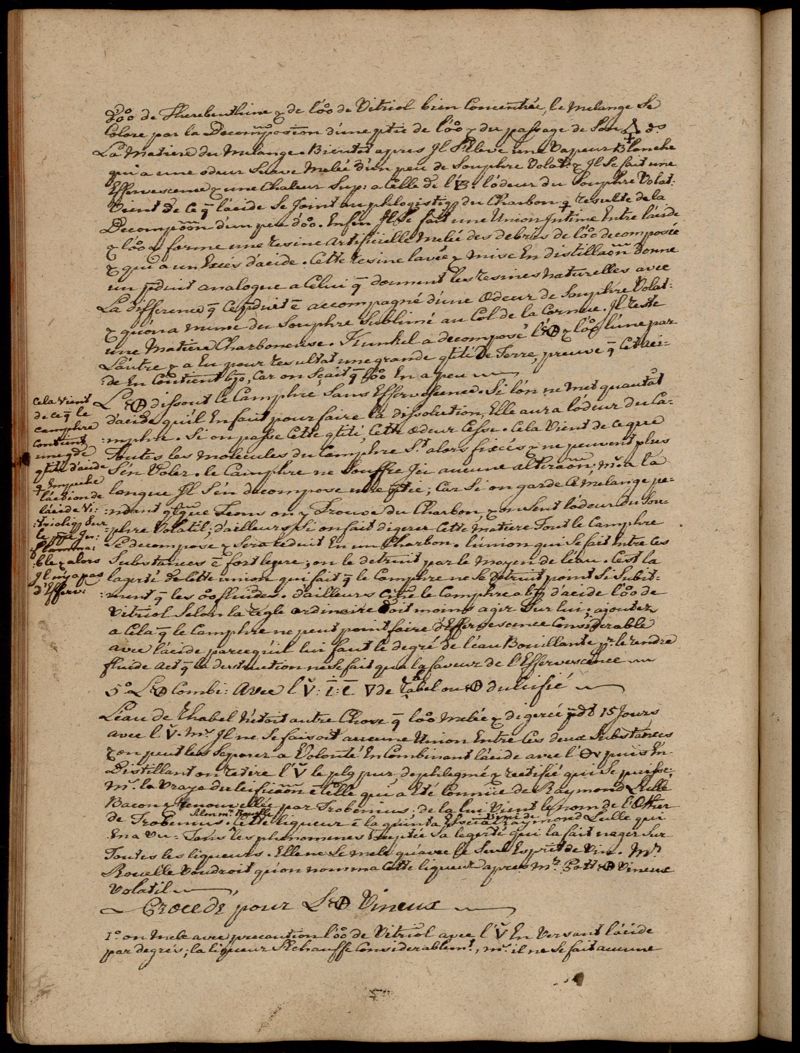 de Therebenthine & de l'oo de Vitriol bien Concentrée, le Melange Se
Colore par la Decomposiom d'une ptie de l'oo & du passage de Son
La Matiere du Melange. Bientot apres Jl S'Eleve une Vapeur Blanche
qui a une odeur Suave Melée d'un peu de Souphre Volat: & Jl Se fait une
Effervescence & une Chaleur Sup: a Celle de l' l'odeur du Souphre Volat:
Vient de Ce q l'acide Se Joint au phlogistiq du Charbon q resulte de la
Decompoom d'un peu d'oo. Enfin Jl Se fait une Union Jntime Entre l'acide
& l'oo & forme une resine Artificielle Melée des debris de l'oo decomposée
& qui a un Excés d'acide. Cette resine lavée & mise En distillaom Donne
un pduit analogue a Celui q donnent les resines Naturelles avec
La difference q Ce pduit ē accompagné d'une Odeur de Souphre Volat:
& qu'on a meme du Souphre Sublimé au Col de la Cornue. Jl reste
une Matiere Charboneuse. Kunkel a decomposé l' & l'oo l'une par
L'autre & a Eu pour resultat une grande qtité de Terre, preuve q Cet aci-
de En Contient bp, Car on Sçait q l'oo En a peu
L' dissout le Camphre Sans Effervescence. Si l'on ne Met quautat
d'acide qu'il En faut pour faire la dissolution, Elle aura l'odeur du Ca-
mphre. Si on passe Cette qtité, Cette odeur Cesse. Cela Vient de ce que
Toutes les Molecules du Camphre St alors fixées & ne peuvent plus
S'En Volez. le Camphre ne Souffre Jci aucune alteraom, Mr a la
longue Jl S'En decompose une ptie; Car Si on garde Ce Melange pe-
ndant qlque Tems on y Trouve du Charbon, & on Sent l'odeur du Sou-
phre Volatil; d'ailleurs Si on fait digerer Cette Matiere Tout le Camphre
Se decompose & Sera reduit En un Charbon. l'union qui Se fait Entre Ces
Substances ē fort legere; on le detruit par le Moyen de l'eau. C'est la
legerté de Cette union qui fait q le Camphre ne Se detruit point Si Subit-
ment q les oo fluides. d'ailleurs le Camphre a bp d'acide l'oo de
Vitriol Selon la regle ordinaire Doit moins agir Sur lui; ajoutez
a Cela q le Camphre ne peut point faire d'Effervescence Considerable
avec l'acide parcequ'il lui faut le degré de l'eau Bouillante pr le rendre
fluide act q la destruction ne Se fait que a la faveur de l'Effervescence
Cela Vient
de Ce q le
Camphre
Contient
une gde
qtité d'acide
q Empeche
l'action de
l'acide Vi-
triolique Sur
le ppe Jn-
flamma-
ble & alors
Jl n'y a pas
d'Efferv:
5° L' Combi: Avec l' de Rabel ou dulcifié
L'eau de Rhabel N'etoit autre Chose q l'oo Melée & digerée pdt 15 Jours
avec l' Mr Jl ne Se faisoit aucune Union Entre Ces deux Substances
& on peut les Separer a Volonté En Combinant l'acide avec l' puis En
Distillant on retire l' le plq pur, dephlegmé & rectifié qui Se puisse.
Mr la Vraye dulcificaom ē Celle qui a Eté Connüe de Raymond Lulle
Bacon & renouvellée par Frobenius; de la lui Vient le Nom de l'Ether
de Frobenius. Cette liqueur ē la quinta Essentia de raymond Lulle qui
En a Vu Tous les phenomenes Excepté Sa legerté qui la fait nager Sur
Toutes les liqueurs. Elle ne Se Mele qu'avec le Seul Esprit de Vin. Mr
Rouelle Voudroit qu'on nomma Cette liqueur d'apres Mr Pott Vineux
Volatil
Procedé pour L' Vineux
1° on Mele avec precaution l'oo de Vitriol avec l' En Versant l'acide
par degrés; la liqueur S'Echauffe Considerablemt, Mr il ne Se fait aucune